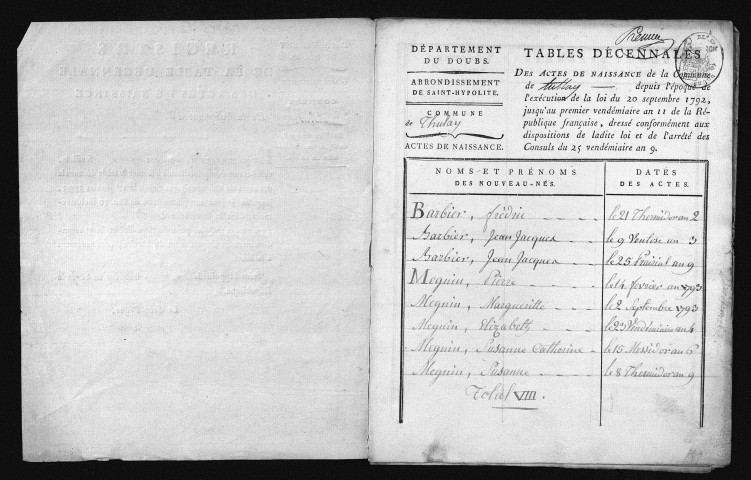 Premier
DÉPARTEMENT
DU DOUBS.
ARRONDISSEMENT
DE SAINT-HYPOLITE.
COMMUNE
de Thulay
ACTES DE NAISSANCE.
TABLES DÉCENNALES
DES ACTES DE NAISSANCE de la Commune
de thulay depuis l'époque de
l'exécution de la loi du 20 septembre 1792,
jusqu'au premier vendémiaire an 11 de la Ré-
publique française, dressé conformément aux
dispositions de ladite loi et de l'arrêté des
Consuls du 25 vendémiaire an 9.
NOMS ET PRÉNOMS
DES NOUVEAU-NÉS.
DATES
DES ACTES.
Barbier, frédric - - - - le 21 Thermidor an 2
Barbier, Jean Jacques - le 9 Ventose an 3
Barbier, Jean Jacques - le 25 Prairial an 9
Meguin, Pierre - - - - le 14 fevrier an 1793
Meguin, Margueritte - - le 2 Septembre 1793
Meguin, Elizabeth - - - le 23 Vendémiaire an 4
Meguin, Susanne Catherine - le 15 Messidor an 6
Meguin, Susanne - - - le 8 Thermidor an 9
Total VIII.